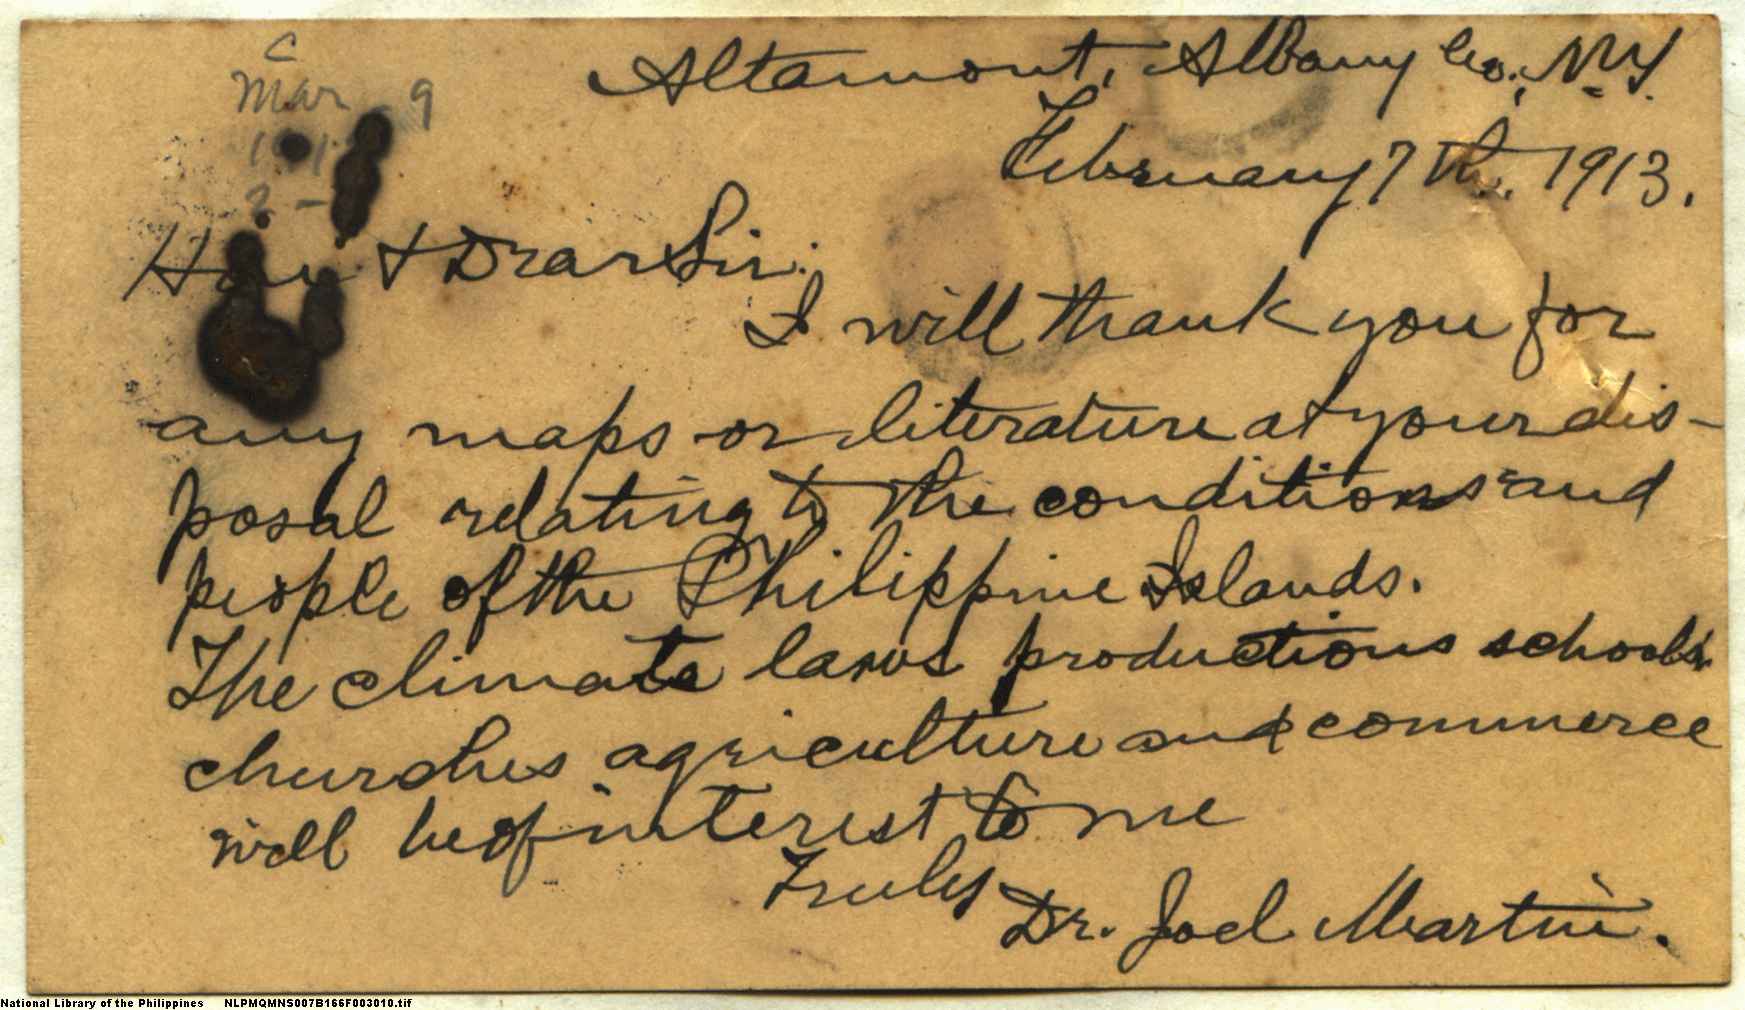 Altamont, Albany Co., N.Y.
February 7th. 1913.
Mar 9
Hon & Dear Sir:
I will thank you for
any maps or literature at your dis-
posal relating to the conditions and
people of the Philippine Islands.
The climate laws productions schools
churches agriculture and commerce
will be of interest to me
Truly
Dr. Joel Martin.
National Library of the Philippines NLPMQMNS007B166F003010.tif